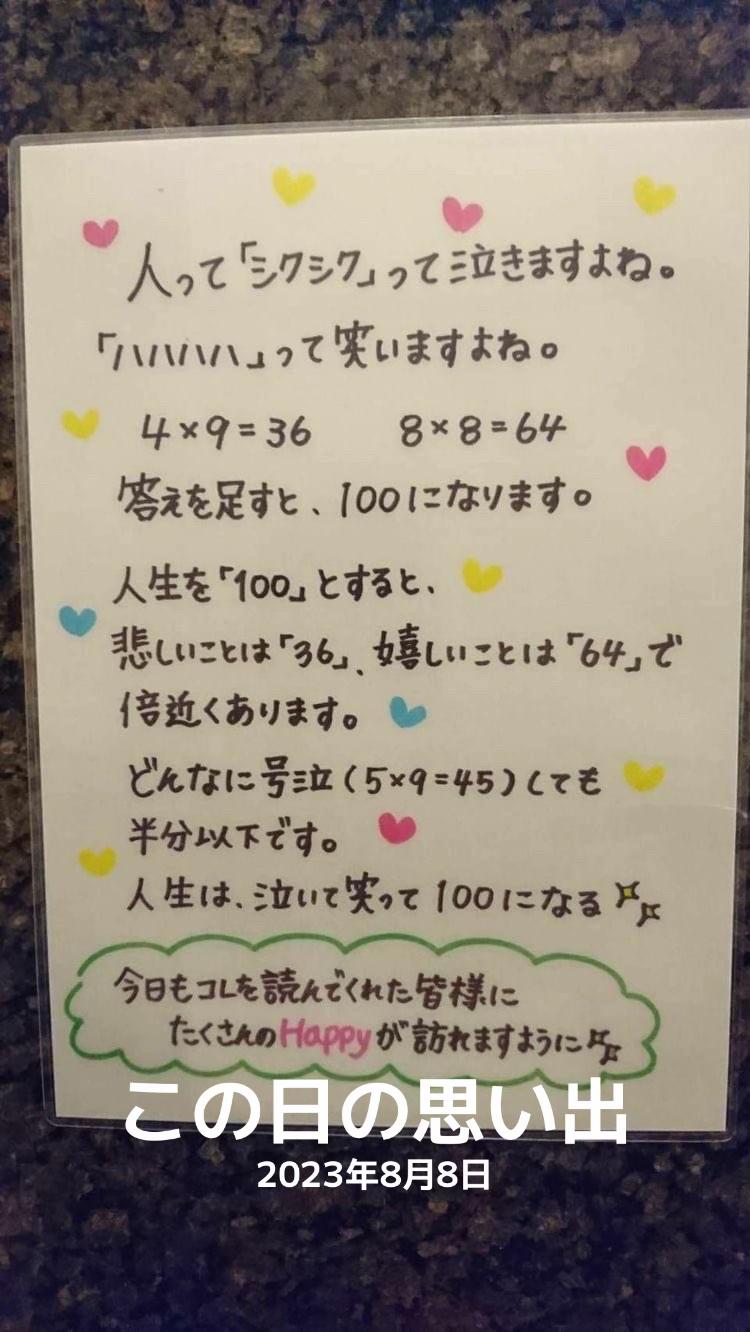 人って「シクシク」って泣きますよね。
「ハハハハ」って笑いますよね。
4×9=36　8×8=64
答えを足すと、100になります。
人生を「100」とすると、
悲しいことは「36」、嬉しいことは「64」で
倍近くあります。
どんなに号泣(5×9=45)しても
半分以下です。
人生は、泣いて笑って100になる
今日もコレを読んでくれた皆様に
たくさんのHappyが訪れますように
この日の思い出
2023年8月8日